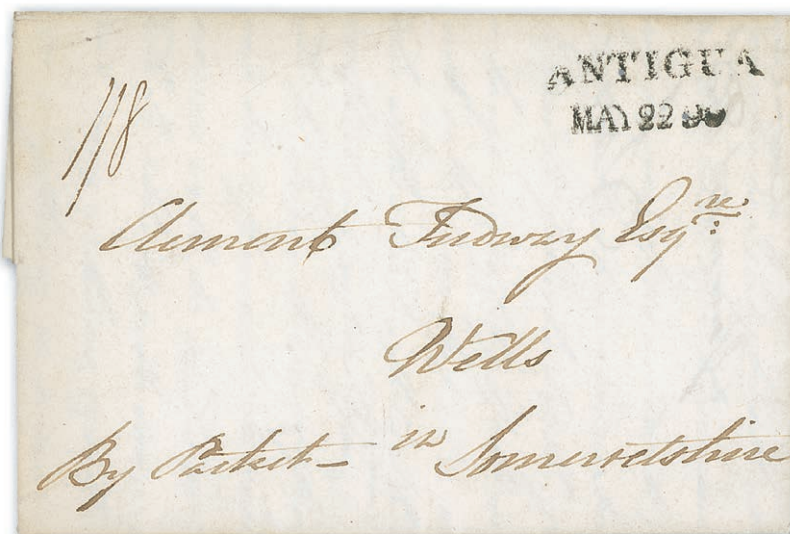 ANTIGUA
MAY 22 90
1/8
Clement Tudway Esqre:
Wells
By Packet – in Somersetshire